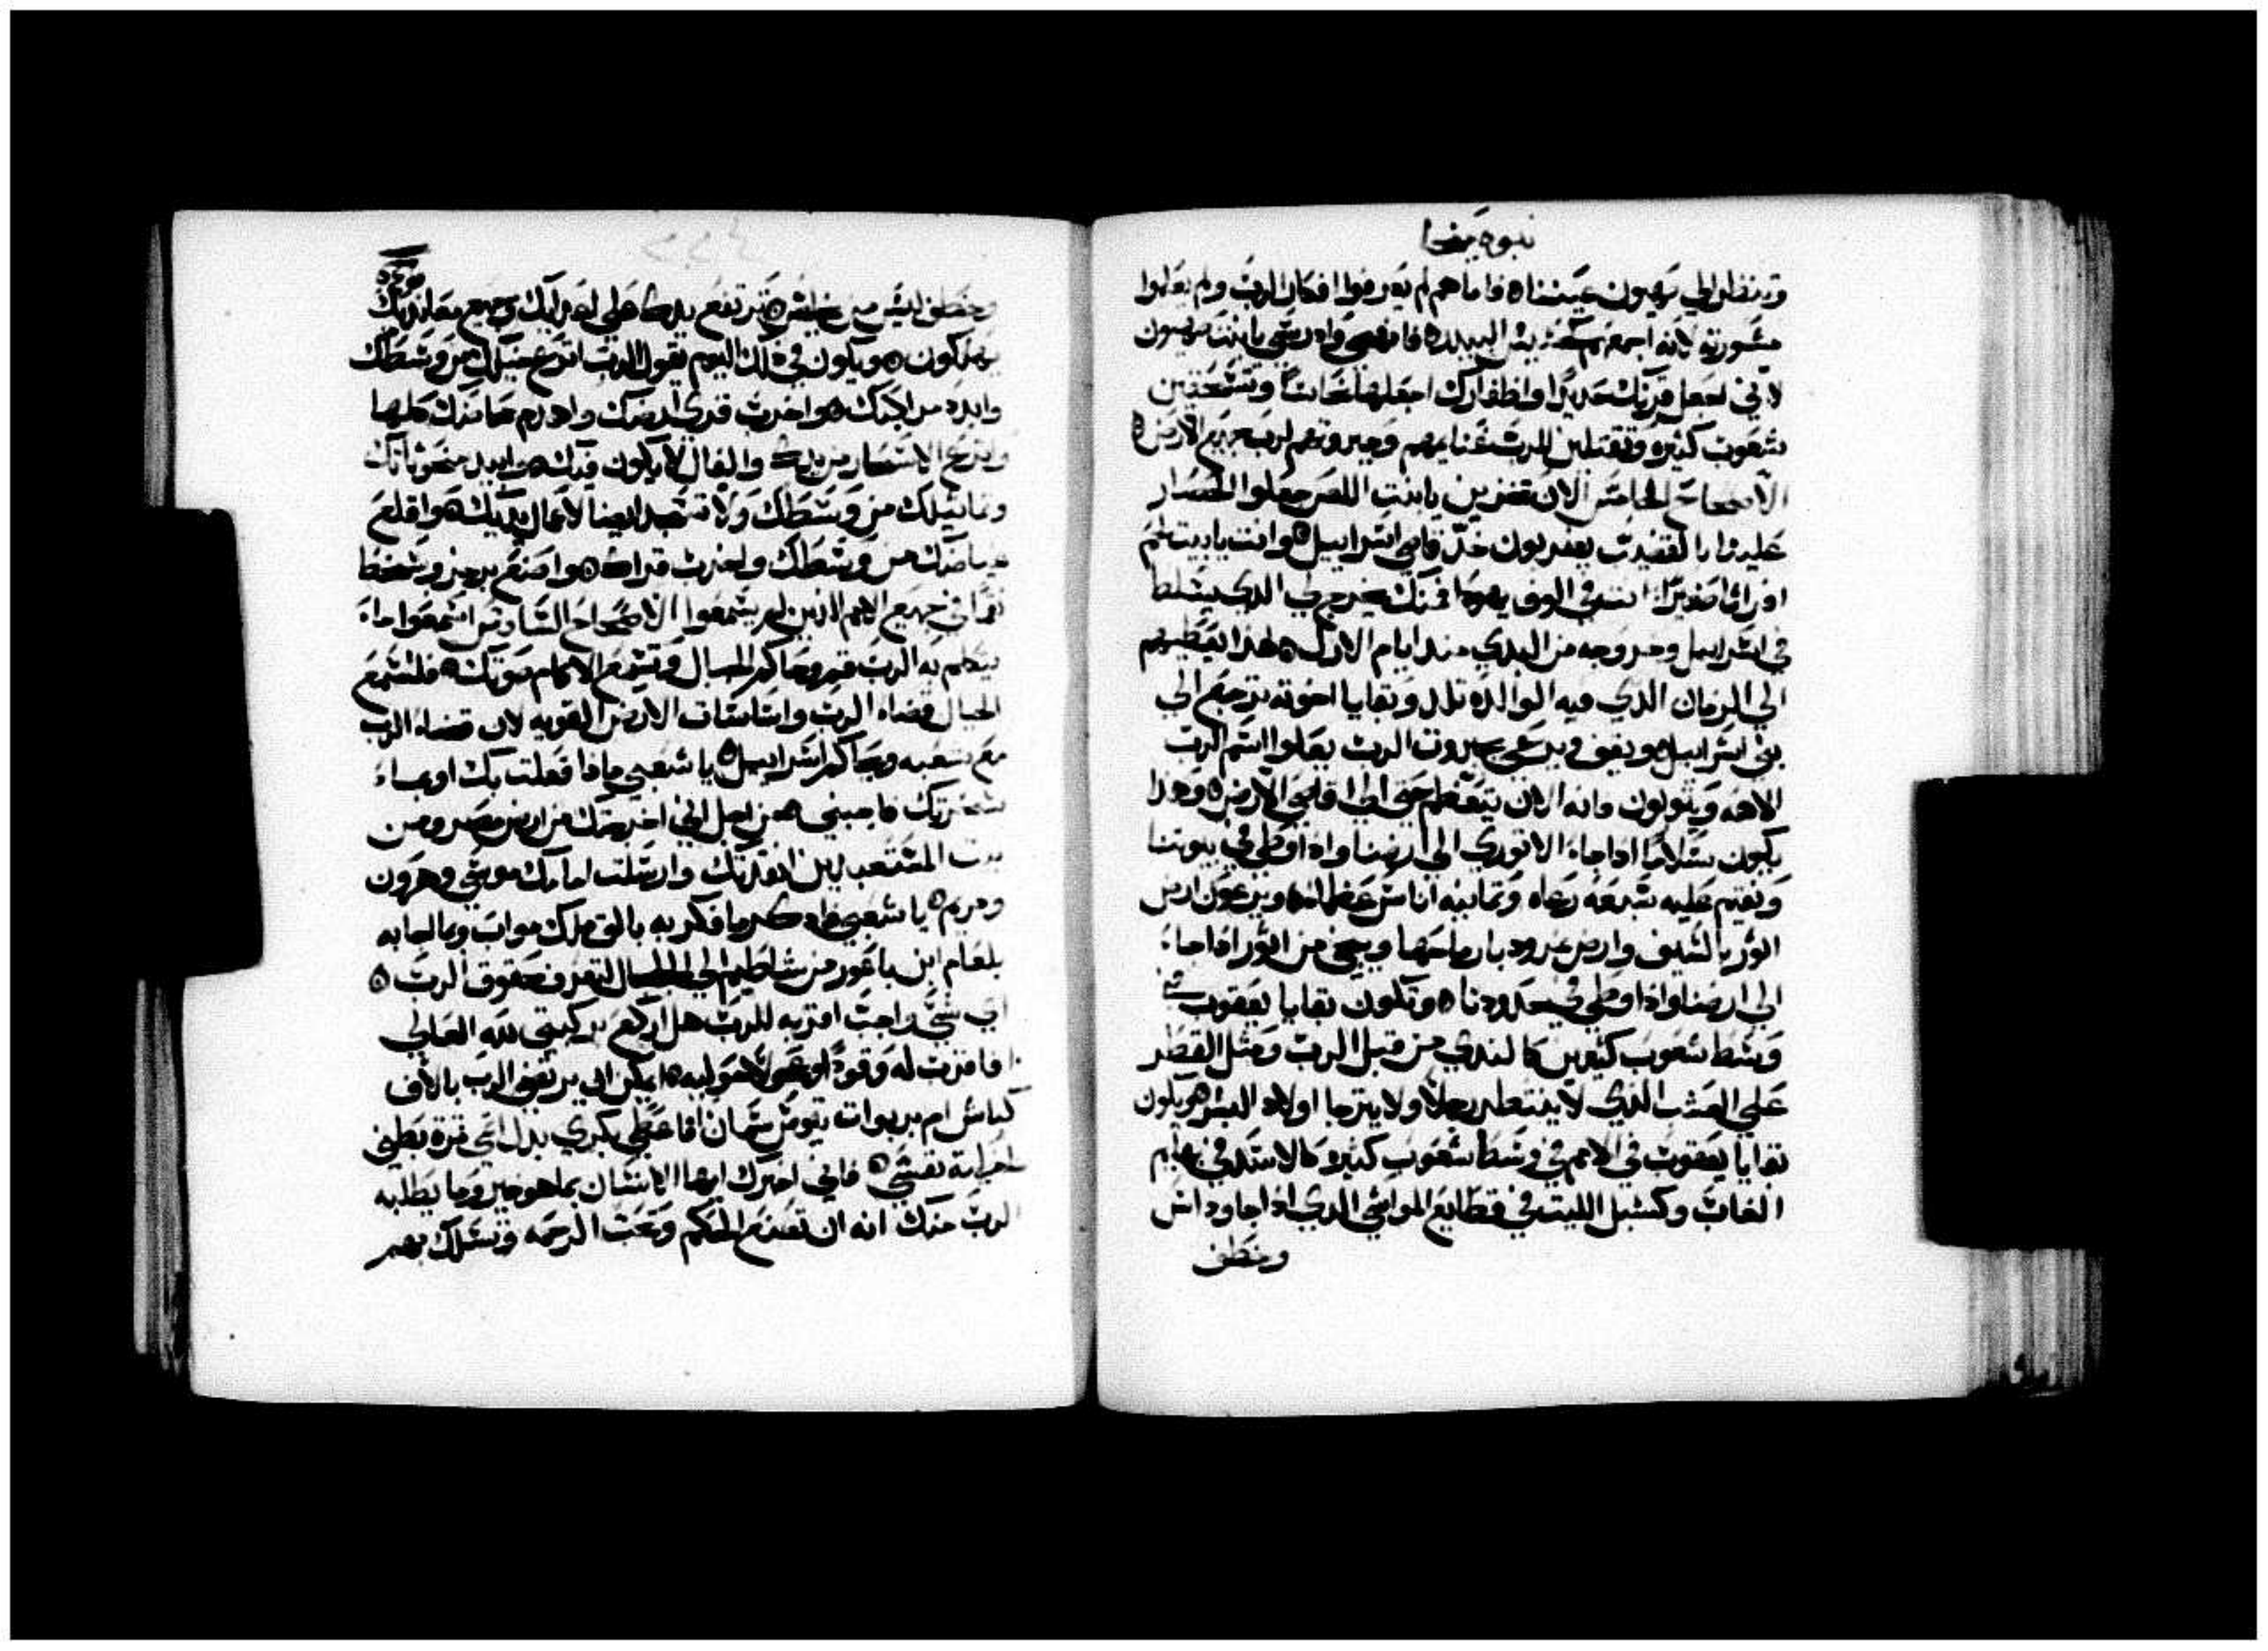 نبوة ميخا
وتنظر الي صهيون عيننا ه فاما هم لم يعرفوا افكار الرب ولم يعلموا
مشورته لانه اجمعهم مثل البيدر ه فانهضي وادرسي يا ابنت صهيون
لاني اجعل قرنك حديدا واظفارك اجعلها نحاسا وتسحقين
شعوب كثيره وتقتلين للرب غنايمهم وجبروتهم لرب جميع الارض ه
الاصحاح الخامس الان تنفردين يا ابنت اللص جعلوا الحصار
علينا بالقضيب يضربون خد قاضي اسراييل ه وانت يا بيت لحم
افراثا صغيرا انت في الوف يهودا فمنك يخرج لي الدي يتسلط
في اسراييل وخروجه من البدي مند ايام الازل ه لهدا يعطيهم
الي الزمان الدي فيه الوالده تلد وبقايا اخوته ترجع الي
بني اسراييل ه ويقف ويرعي بجبروت الرب بعلو اسم الرب
الاهه ويتولون فانه الان يتعظم حتي الي اقاصي الارض ه وهدا
يكون سلاما ادا جاء الاتوري الي ارضنا وادا وطي في بيوتنا
ونقيم عليه سبعه رعاه وتمانيه اناس عظما ه ويرعون ارض
اتور بالسيف وارض نمرود بارماحها وينجي من اتور ادا جاء
الي ارضنا وادا وطي في حدودنا ه وتكون بقايا يعقوب في
وسط شعوب كثيرين كالندي من قبل الرب ومثل القطر
علي العشب الدي لا ينتظر رجلا ولا يترجا اولاد البشر ه ويكون
بقايا يعقوب في الامم في وسط شعوب كثيره كالاسد في بهايم
الغاب وكشبل الليت في قطايع المواشي الدي ادا جاوداس
وخطف
وخطف ليس من يخلص ه ترتفع يدك علي اعدايك وجميع معانديك
يهلكون ه ويكون في دلك اليوم يقول الرب انزع خيلك من وسطك
وابدد مراكبك ه واخرب قري ارضك واهدم حصونك كلها
وانزع الاسحار من يدك والفال لا يكون فيك ه وابيد منحوتاتك
وتماثيلك من وسطك ولا تسجد ايضا لاعمال يديك ه واقلع
غياضك من وسطك واخرب قراك ه واصنع برجز وسخط
نقما في جميع الامم الدين لم يسمعوا الاصحاح السادس اسمعوا ما
يتكلم به الرب قم وحاكم الجبال وتسمع الاكام صوتك ه فلتسمع
الجبال قضاء الرب واساسات الارض القويه لان قضاء الرب
مع شعبه ويحاكم اسراييل ه يا شعبي مادا فعلت بك او بماء
احزنتك فاجبني ه من اجل اني اخرجتك من ارض مصر ومن
بيت المستعبدين انقدتك وارسلت امامك موسي وهرون
ومريم ه يا شعبي فادكر ما فكر به بالق ملك مواب وما اجابه
بلعام ابن باعور من شاطيم الي الجلجال لتعرف حقوق الرب ه
اي شي واجب اقربه للرب هل اركع بركبتي لله العالي
فاقرب له وقودا او عجولا حوليه ه ايمكن ان يرتضي الرب بالاف
كباش ام بربوات تيوس سمان اما اعطي بكري بدل اثمي تمرة بطني
لخطية نفسي ه فاني اخبرك ايها الانسان بما هو خير وما يطلبه
الرب منك انه ان تصنع الحكم وتحب الرحمه وتسلك بهم